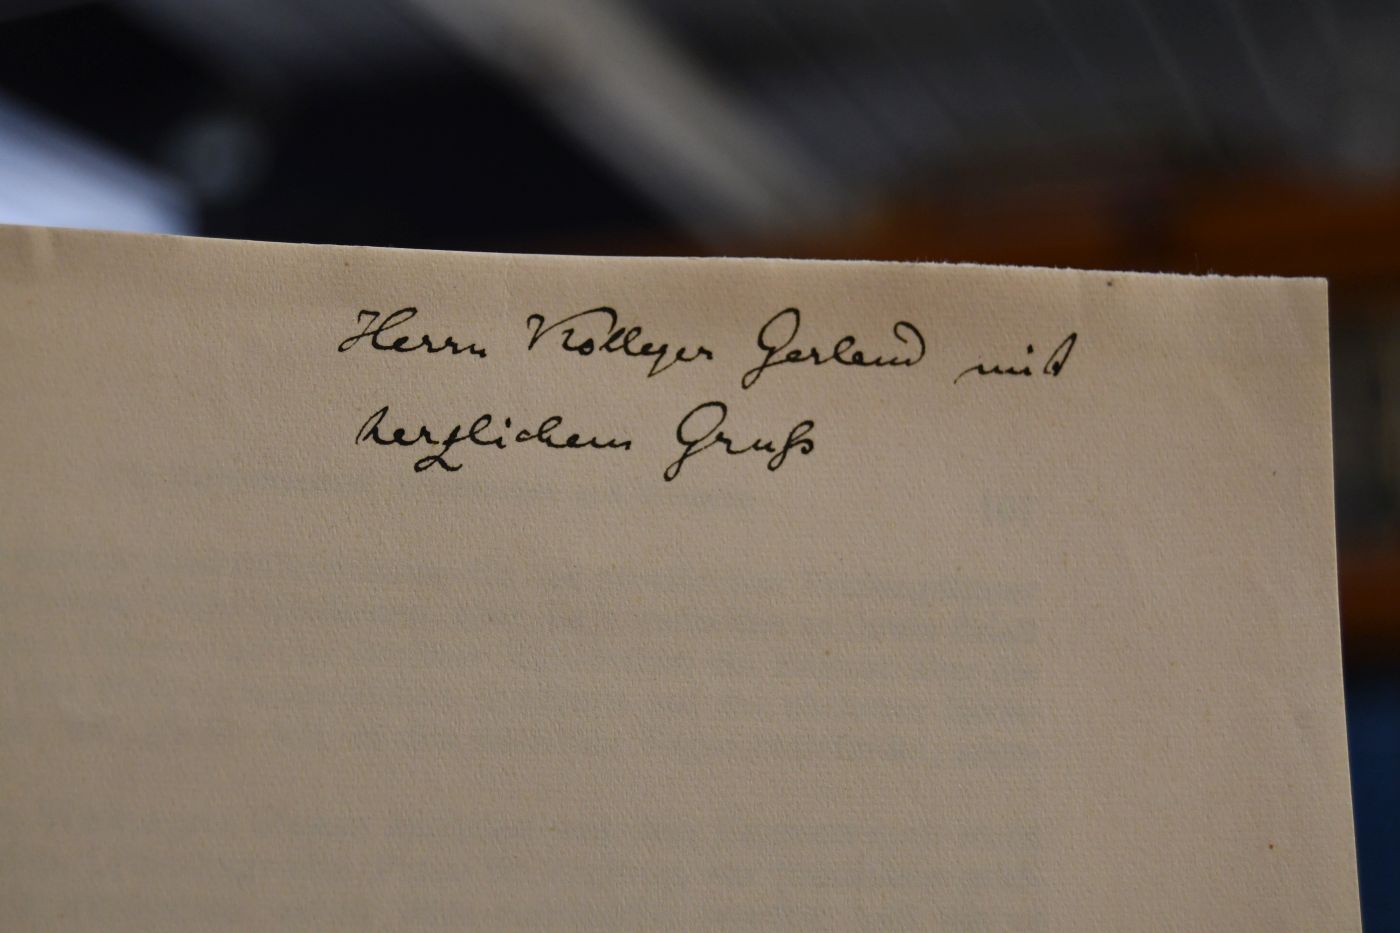 Herrn Kollegen Gerland mit
herzlichem Gruß